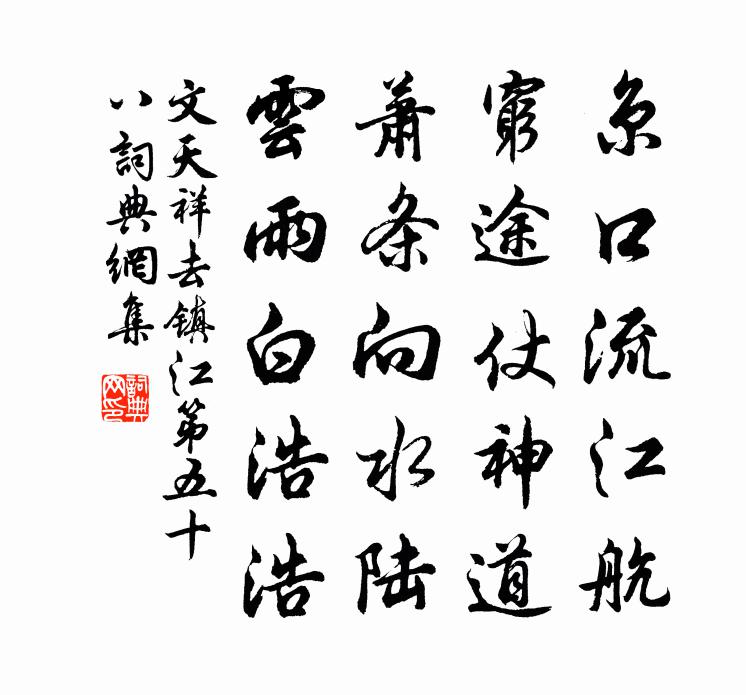 京口流江航
窮途仗神道
蕭条向水陆
雲雨白浩浩
文天祥去鎮江第五十
八詞典網集
詞典
网印